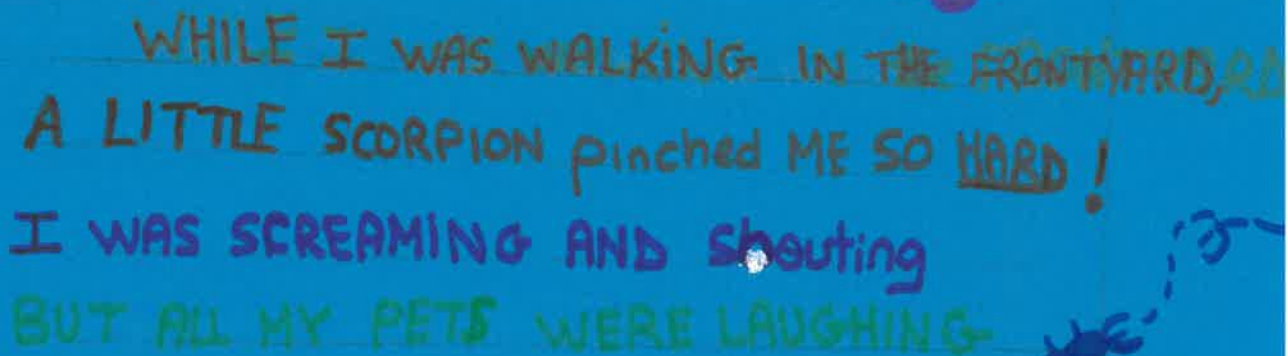 WHILE I WAS WALKING IN THE FRONTYARD,
A LITTLE SCORPION pinched ME SO HARD!
I WAS SCREAMING AND shouting
BUT ALL MY PETS WERE LAUGHING